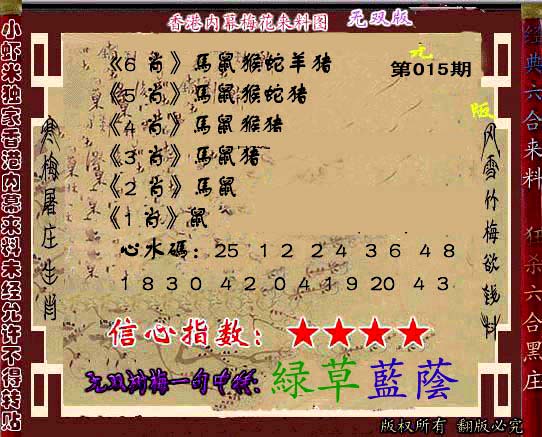 香港内幕梅花来料图 无双版
小虾米独家香港内幕来料未经允许不得转贴
寒梅屠庄生肖
《6 肖》馬鼠猴蛇羊猪
《5 肖》馬鼠猴蛇猪
《4 肖》馬鼠猴猪
《3 肖》馬鼠猪
《2 肖》馬鼠
《1 肖》鼠
心水碼：25 12 24 36 48
18 30 42 04 19 20 43
信心指数：★★★★
无双浏梅一句中特：綠草藍蔭
元
第015期
版
风雪竹梅欲钱料
经典六合来料 狂杀六合黑庄
版权所有 翻版必究